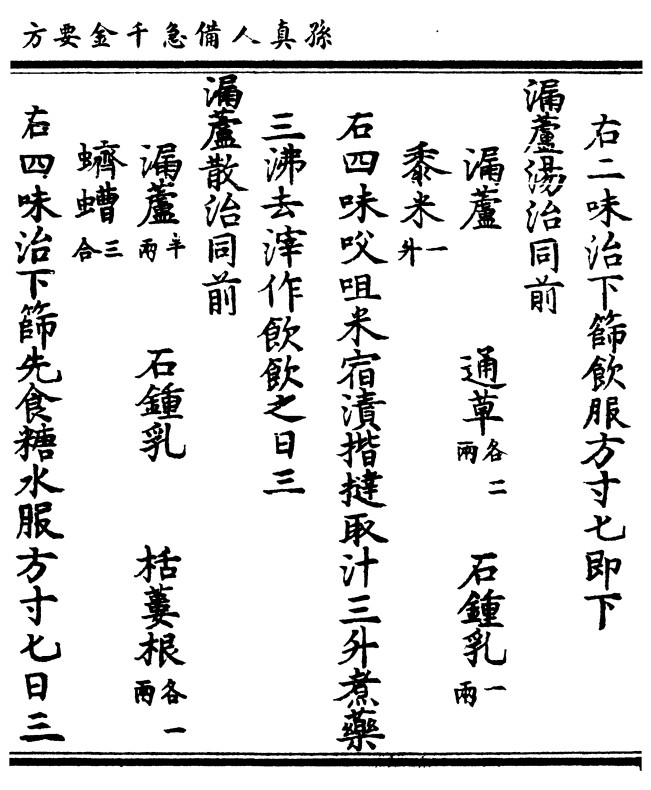 孫真人備急千金要方
右二味治下篩飲服方寸七即下
漏蘆湯治同前
漏蘆 通草各二兩 石鍾乳一兩
黍米一升
右四味㕮咀米宿漬揩撻取汁三升煮藥
三沸去滓作飲飲之日三
漏蘆散治同前
漏蘆半兩 石鍾乳 栝蔞根各一兩
蠐螬三合
右四味治下篩先食糖水服方寸七日三